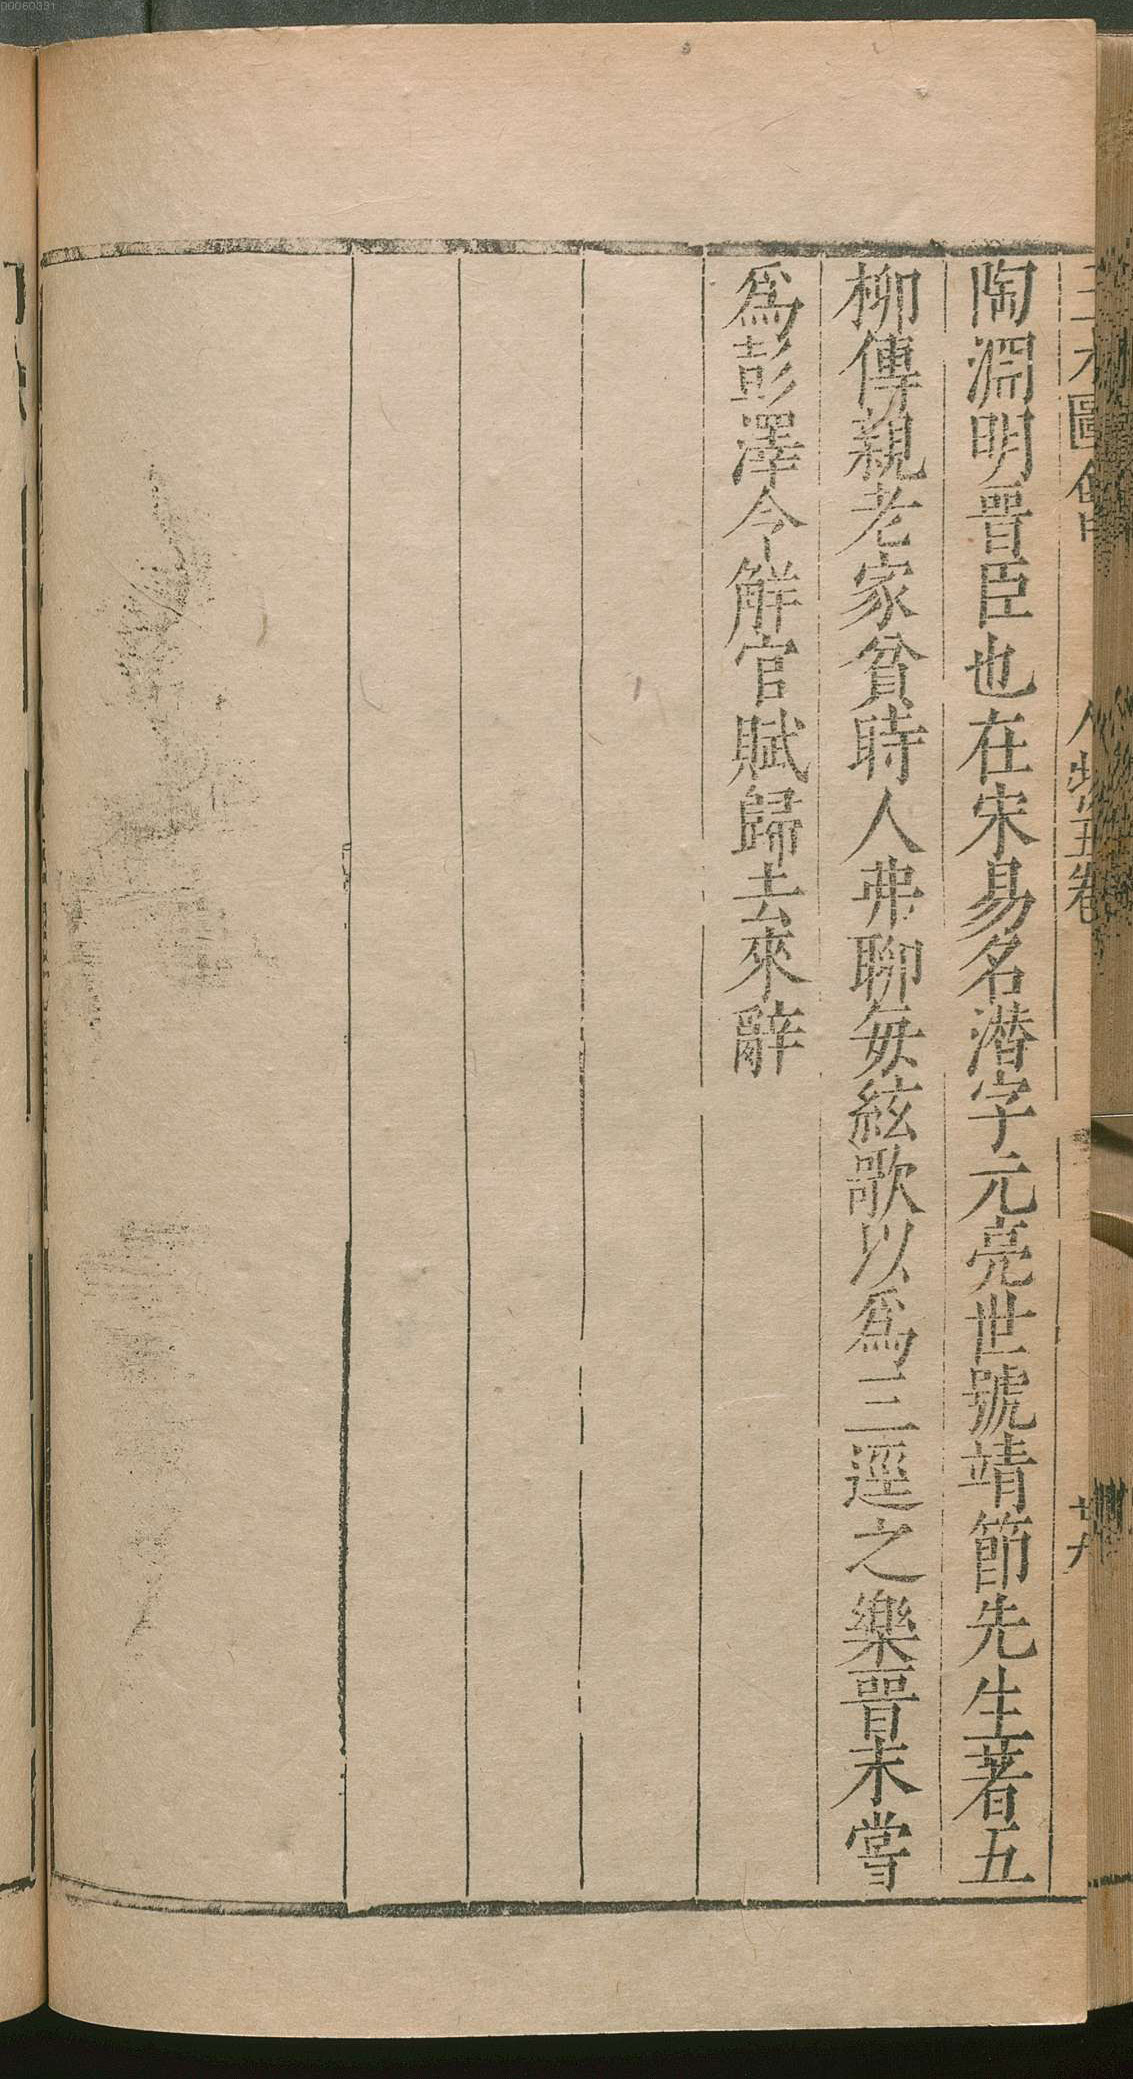 三才圖會
人物五卷
廿九
陶淵明晋臣也在宋易名潛字元亮世號靖節先生著五
柳傳親老家貧時人弗聊每絃歌以爲三逕之樂晋末嘗
爲彭澤令解官賦歸去來辭
00060331